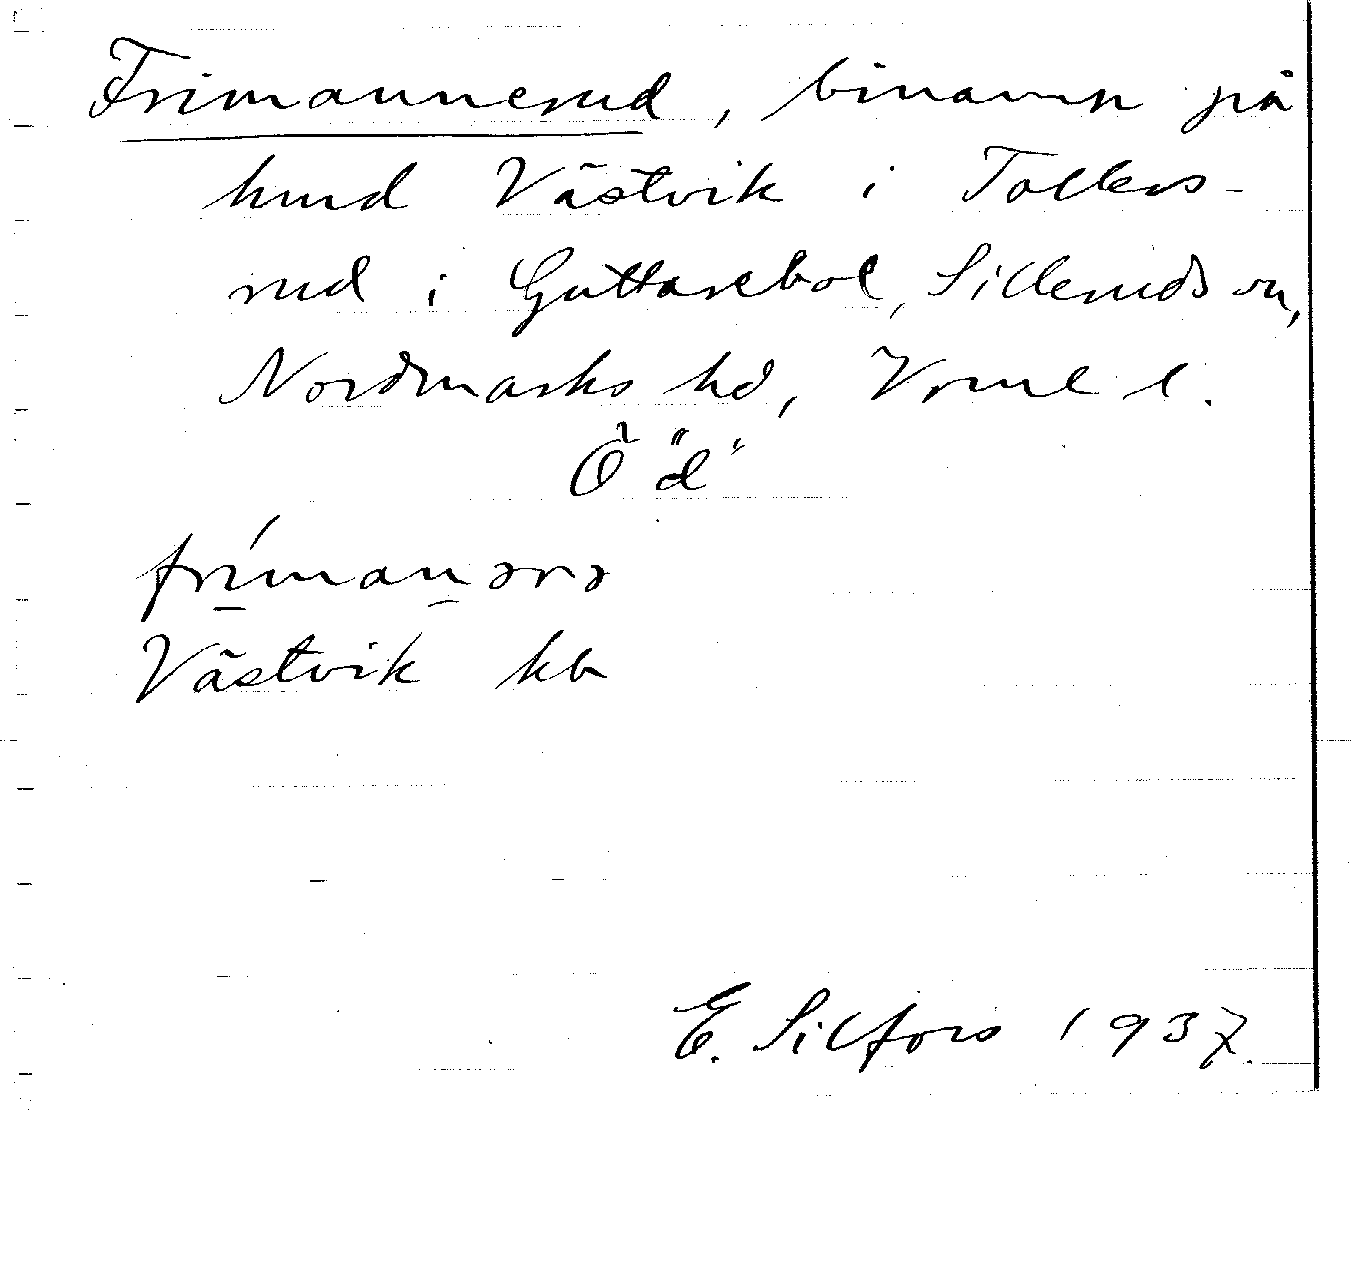 Frimannerud, binamn på
hmd Västvik i Tollers-
rud i Guttarebol, Sillerudssn,
Nordmarks hd, Vrml l.
Ö "d"
fri´manərə
Västvik kb
E. Silfors 1937.